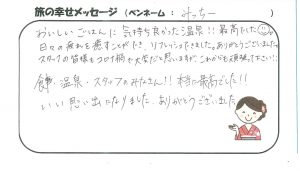 旅の幸せメッセージ (ペンネーム : みっちー )
おいしいごはんに気持ち良かった温泉!!最高でした
日々の疲れを癒すことができ、リフレッシュできました。ありがとうございました。
スタッフの皆様もコロナ禍で大変だと思いますが、これからも頑張って下さい!!
食事・温泉・スタッフのみなさん!!本当に最高でした!!
いい思い出になりました。ありがとうございました